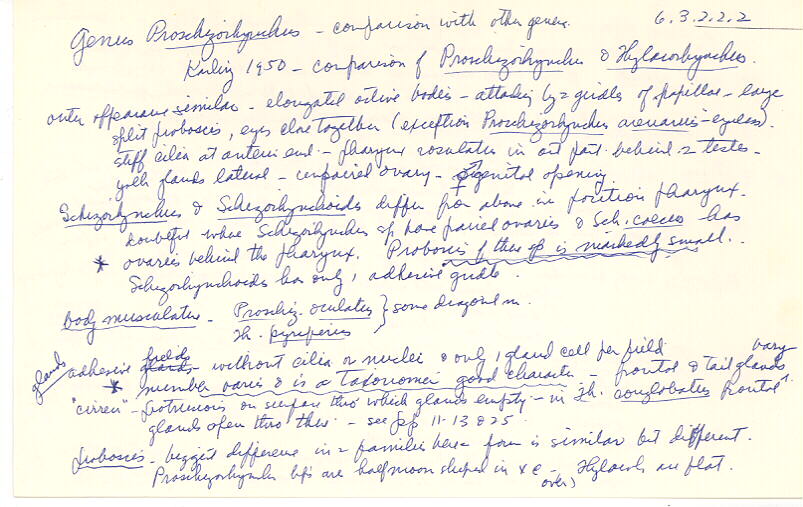 6.3.2.2.2
Genus Proschizorhynchus - comparison with other genera.
Karling 1950 - comparison of Proschizorhynchus & Thylacorhynchus.
outer appearance similar - elongated active bodies - attaching by 2 girdles of papillae - large
split proboscis, eyes close together (exception Proschizorhynchus arenarius - eyeless).
stiff cilia at anterior end - pharynx rosulatus in ant part behind 2 testes -
yolk glands lateral - unpaired ovary - genital opening.
Schizorhynchus & Schizorhynchoides differ from above in position pharynx.
doubtful whose Schizorhynchus sp have paired ovaries & Sch. coecus has
* ovaries behind the pharynx. Proboscis of these sp is markedly small.
Schizorhynchoides has only 1 adhesive girdle.
body musculature - Proschiz. oculatus } some diagonal m.
Th. pyriferus
glands adhesive fields glands - without cilia or nuclei & only 1 gland cell per field
* number varies & is a taxonomic good character - frontal & tail glands vary
"cirren" - protrusions on surface thro which glands empty - in Th. conglobatus frontal
glands open thro these - see pp 11-13 & 25.
proboscis - biggest difference in 2 families here form is similar but different.
Proschizorhynchus lips are halfmoon shaped in x c - Thylacorh are flat.
(over)